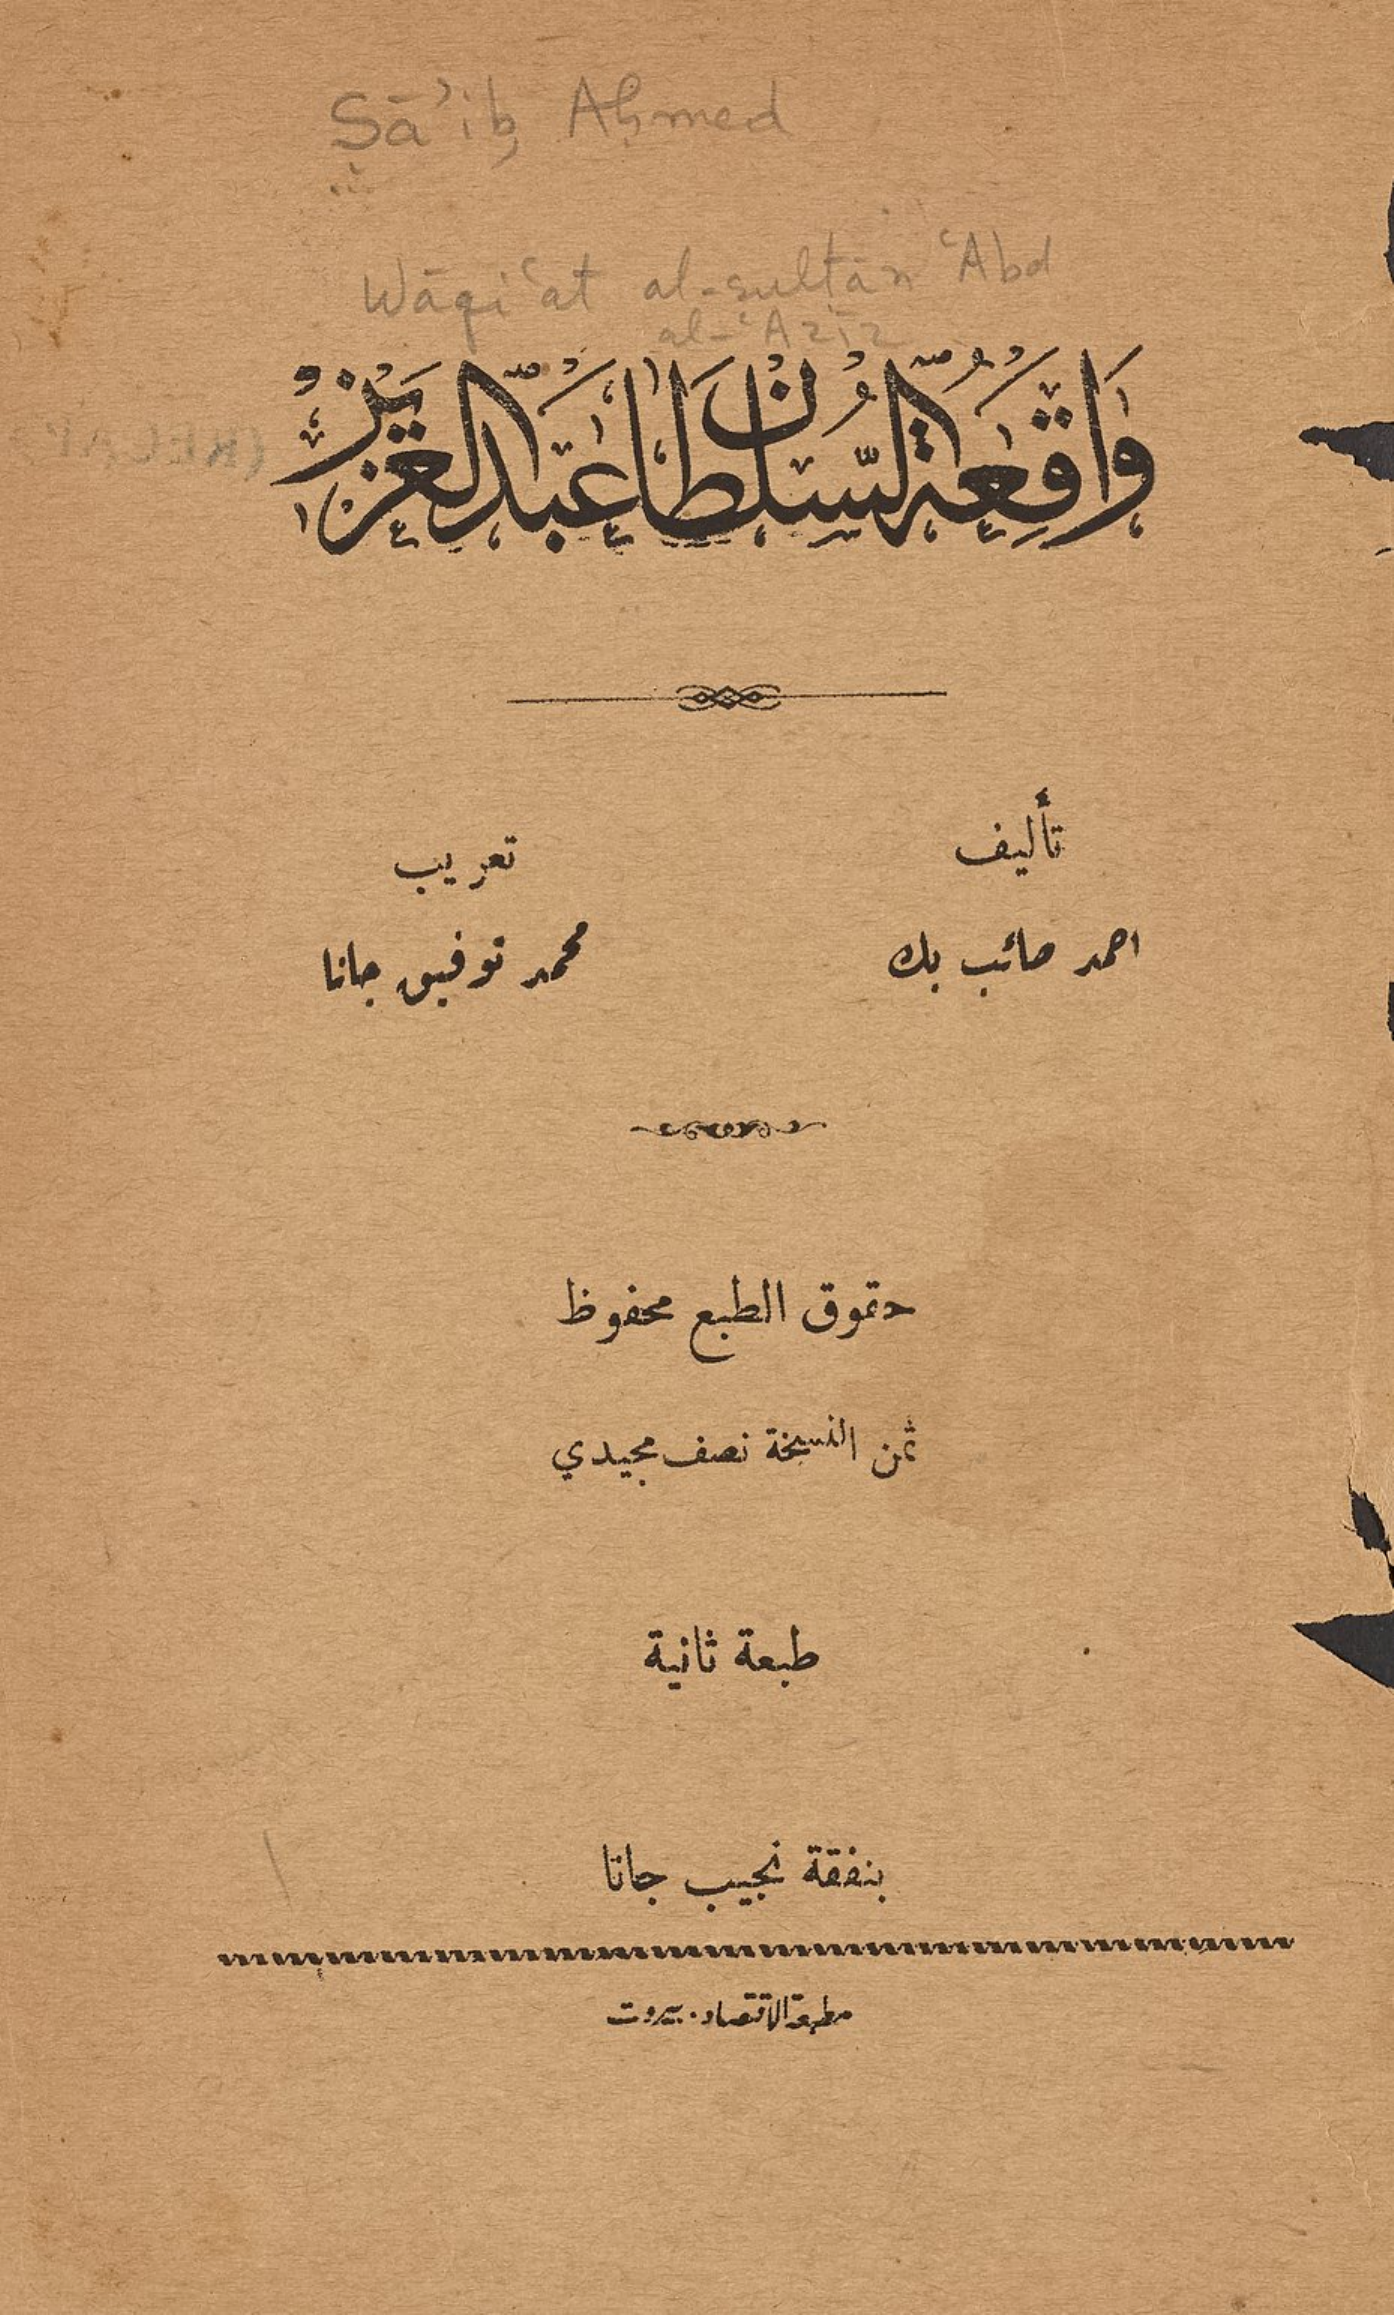 Ṣā'ib Aḥmed
Wāqi'at al-sulṭān 'Abd
al-'Azīz
واقعة السلطان عبد العزيز
تأليف
احمد صائب بك
تعريب
محمد توفيق جانا
حقوق الطبع محفوظ
ثمن النسخة نصف مجيدي
طبعة ثانية
بنفقة نجيب جانا
مطبعة الاقتصاد . بيروت